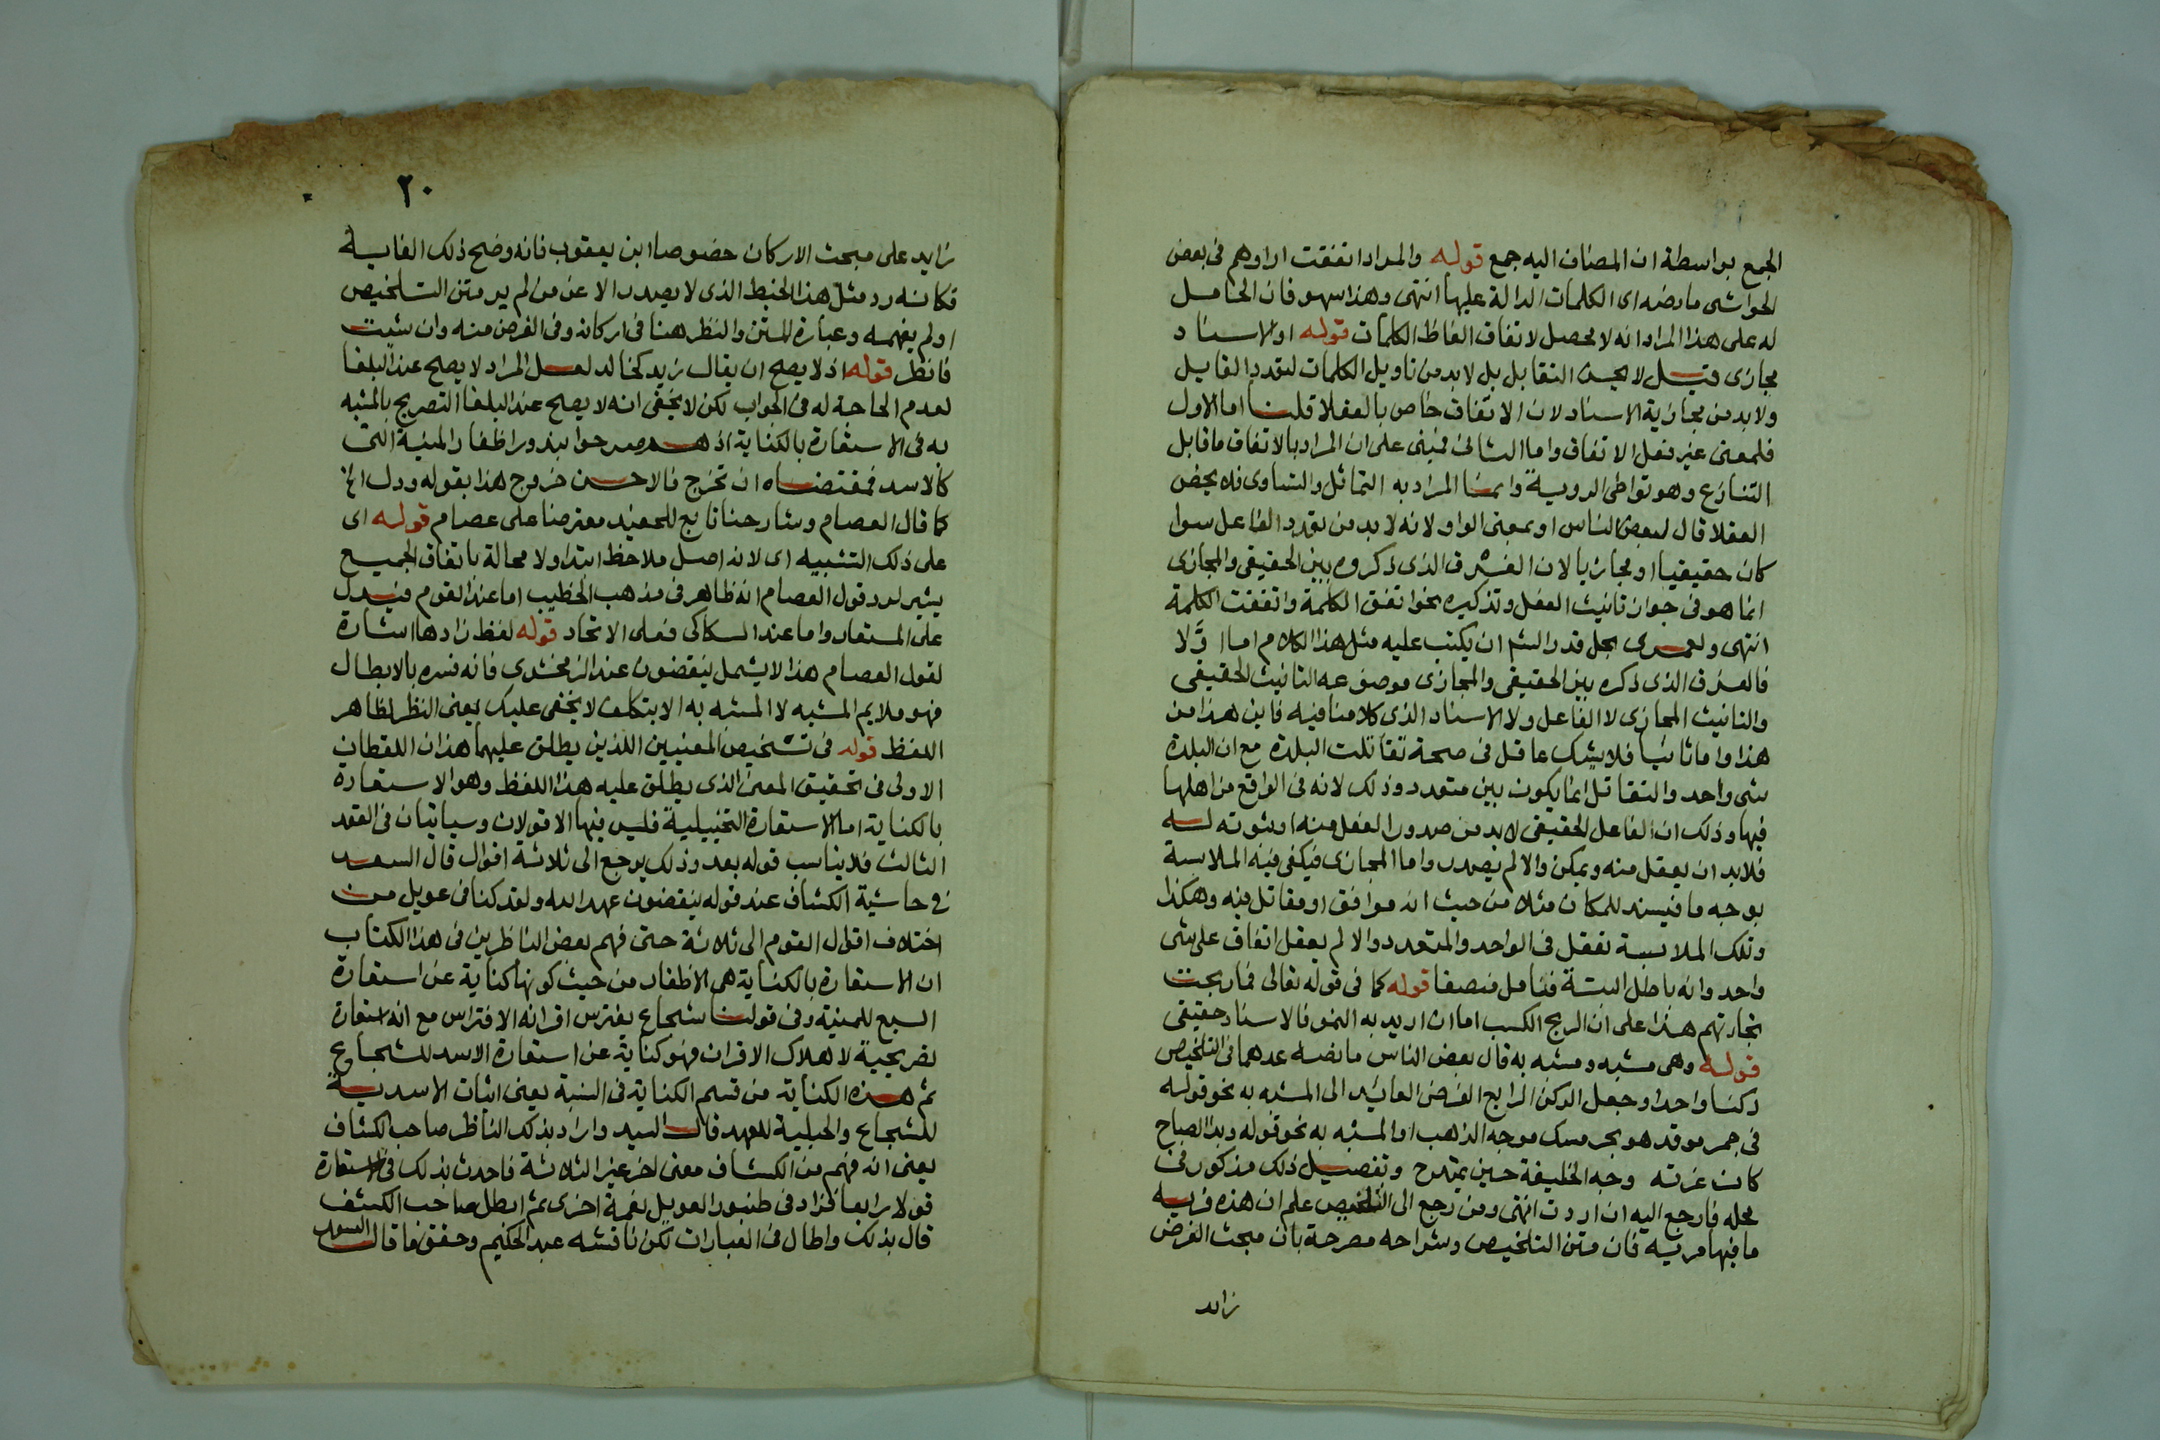 الجمع بواسطة ان المضاف اليه جمع قوله والمراد اتفقت اراوهم فى بعض
الحواشى ما نصه اى الكلمات الدالة عليها انتهى وهذا سهو فان الحامل
له على هذا المراد انه لا محصل لاتفاق الفاظ الكلمات قوله او الاسناد
مجازى قيل لا يحسن التقابل بل لا بد من تاويل الكلمات لتعدد القايل
ولا بد من مجازية الاسناد لان الاتفاق خاص بالعقلا قلنا اما الاول
فلمعنى غير فعل الاتفاق واما الثانى فمبنى على ان المراد بالاتفاق ما قابل
التنازع وهو تواطى الروية وانما المراد به التماثل والتساوى فلا يخص
العقلا قال بعض الناس او بمعنى الواو لانه لا بد من تعدد الفاعل سوا
كان حقيقيا او مجازيا لان الفرق الذى ذكروه بين الحقيقى والمجازى
انما هو فى جواز تانيث الفعل وتذكيره نحو اتفق الكلمة واتفقت الكلمة
انتهى ولعمرى يجل قدر الشم ان يكتب عليه مثل هذا الكلام اما اولا
فالفرق الذى ذكره بين الحقيقى والمجازى موضوعه التانيث الحقيقى
والتانيث المجازى لا الفاعل ولا الاسناد الذى كلامنا فيه فاين هذا من
هذا واما ثانيا فلا يشك عاقل فى صحة تقاتلت البلدة مع ان البلدة
شى واحد والتقاتل انما يكون بين متعدد وذلك لانه فى الواقع من اهلها
فيها وذلك ان الفاعل الحقيقى لا بد من صدور الفعل منه او ثبوته له
فلا بد ان يعقل منه ويمكن والا لم يصدر واما المجازى فيكفى فيه الملابسة
بوجه ما فيسند للمكان مثلا من حيث انه موافق او مقاتل فيه وهكذا
وتلك الملابسة تعقل فى الواحد والمتعدد والا لم يعقل اتفاق على شى
واحد وانه باطل البتة فتامل منصفا قوله كما فى قوله تعالى فما ربحت
تجارتهم هذا على ان الربح الكسب اما ان اريد به النمو فالاسناد حقيقى
قوله وهى مشبه ومشبه به قال بعض الناس ما نصه عدهما فى التلخيص
ركنا واحدا وجعل الركن الرابع الغرض العايد الى المشبه به نحو قوله
فى جمر موقد هو بحر مسك موجه الذهب او المشبه به نحو قوله وبدا الصباح
كان غرته وجه الخليفة حين يمتدح وتفصيل ذلك مذكور فى
محله فارجع اليه ان اردت انتهى ومن رجع الى التلخيص علم ان هذه فرية
ما فيها مرية فان متن التلخيص وشراحه مصرحة بان مبحث الغرض
زايد
٢٠
زايد على مبحث الاركان خصوصا ابن يعقوب فانه وضح ذلك الغاية
فكانه رد مثل هذا الخبط الذى لا يصدر الا عن من لم ير متن التلخيص
او لم يفهمه وعبارة المتن والنظر هنا فى اركانه وفى الغرض منه وان شيت
فانظر قوله اذ لا يصح ان يقال زيد كخالد لعل المراد لا يصح عند البلغا
لعدم الحاجة له فى الجواب لكن لا يخفى انه لا يصح عند البلغا التصريح بالمشبه
به فى الاستعارة بالكناية اذ هم صرحوا بندور اظفار المنية التى
كالاسد فمقتضاه ان تخرج فالاحسن خروج هذا بقوله ودل الخ
كما قال العصام وشارحنا تابع للحفيد معترضا على عصام قوله اى
على ذلك التشبيه اى لانه اصل ملاحظ ابتدا ولا محالة باتفاق الجميع
يشير لرد قول العصام انه ظاهر فى مذهب الخطيب اما عند القوم فيدل
على المستعار واما عند السكاكى فعلى الاتحاد قوله لفظ زادها اشارة
لقول العصام هذا لا يشمل ينقضون عند الزمخشرى فانه فسره بالابطال
فهو ملايم المشبه لا المشبه به الا بتكلف لا يخفى عليك يعنى النظر لظاهر
اللفظ قوله فى تشخيص المعنيين اللذين يطلق عليهما هذان اللفظان
الاولى فى تحقيق المعنى الذى يطلق عليه هذا اللفظ وهو الاستعارة
بالكناية اما الاستعارة التخييلية فليس فيها الا قولان وسياتيان فى العقد
الثالث فلا يناسب قوله بعد وذلك يرجع الى ثلاثة اقوال قال السعد
فى حاشية الكشاف عند قوله ينقضون عهد الله ولقد كنا فى عويل من
اختلاف اقوال القوم الى ثلاثة حتى فهم بعض الناظرين فى هذا الكتاب
ان الاستعارة بالكناية هى الاظفار من حيث كونها كناية عن استعارة
السبع للمنية وفى قولنا شجاع يفترس اقرانه الافتراس مع انه استعارة
تصريحية لاهلاك الاقران فهو كناية عن استعارة الاسد للشجاع
ثم هذه الكناية من قسم الكناية فى النسبة يعنى اثبات الاسدية
للشجاع والحبلية للعهد قال السيد واراد بذلك الناظر صاحب الكشاف
يعنى انه فهم من الكشاف معنى اخر غير الثلاثة فاحدث بذلك فى الاستعارة
قولا رابعا فزاد فى طنبور العويل نغمة اخرى ثم ابطل صاحب الكشف
قال بذلك واطال فى العبارات لكن ناقشه عبد الحكيم وحقق ما قال السعد